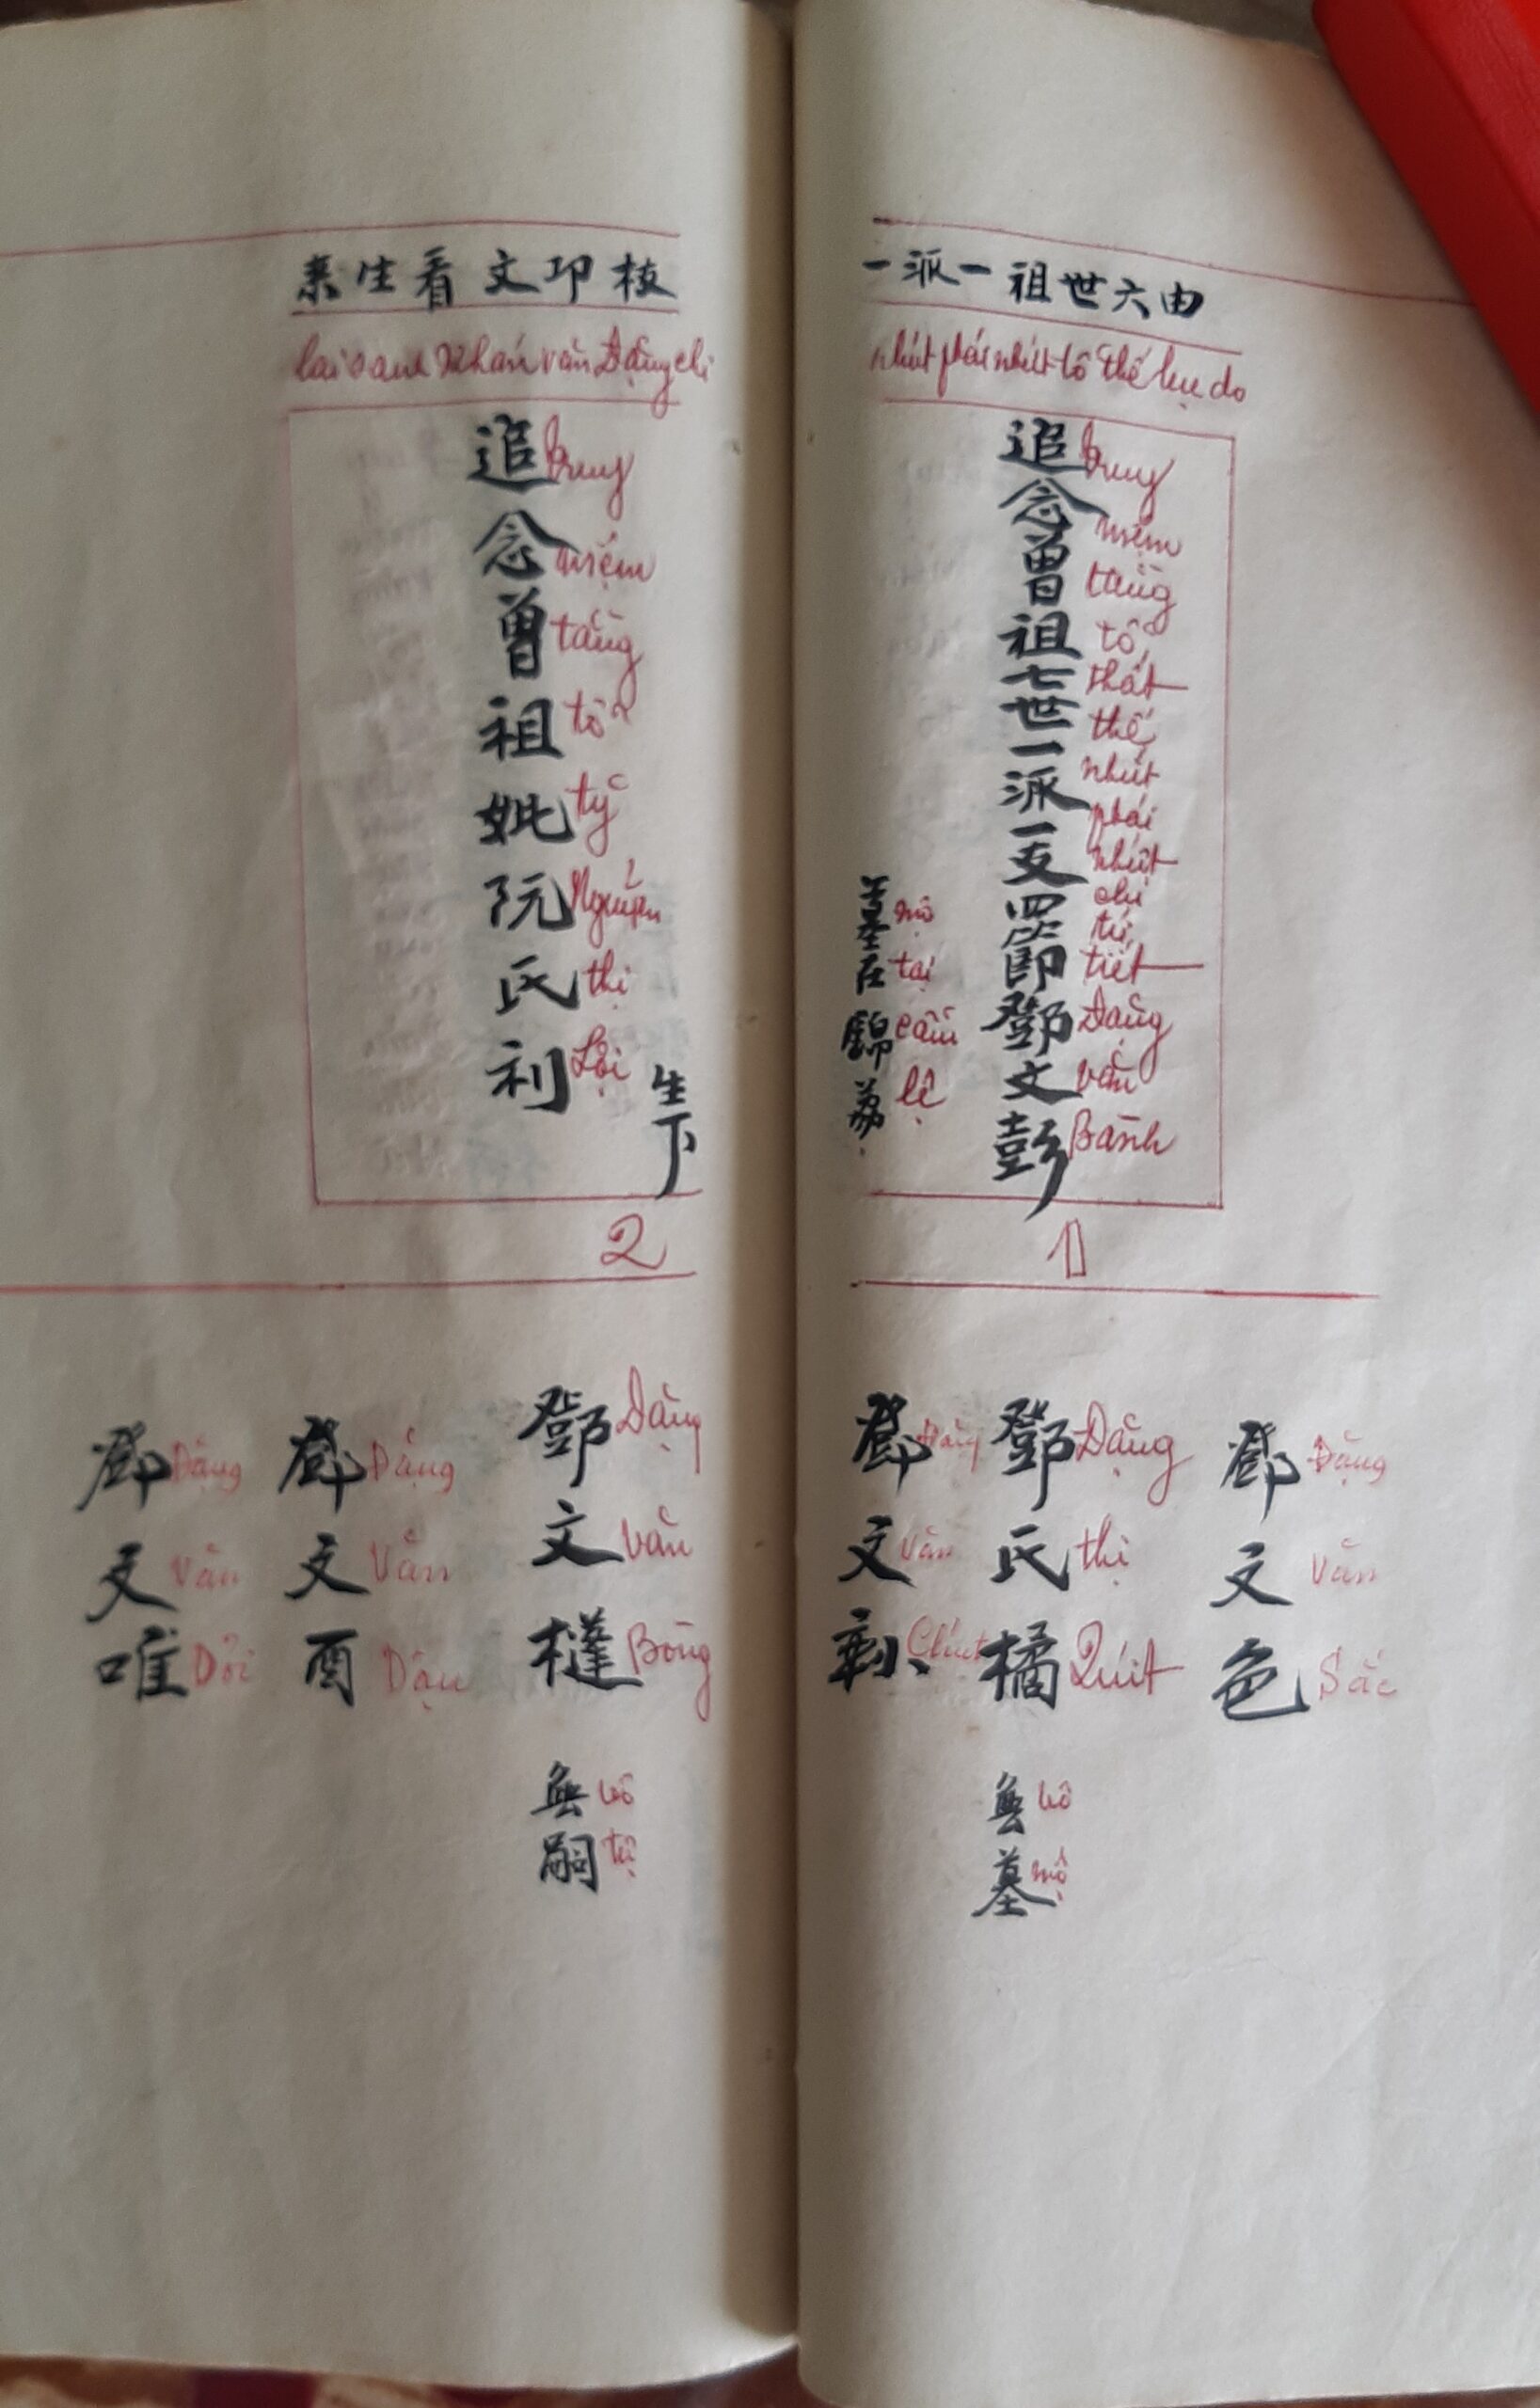 由六世祖一派一
nhứt phái nhứt tổ thế lục do
追念曾祖七世一派一支四次節鄧文彭
truy niệm tằng tổ thất thế nhứt phái nhứt chi tứ tiết Đặng văn Bành
墓在錦荔
mộ tại cẩm lệ
1
鄧文色
Đặng Văn Sắc
鄧氏橘
Đặng thị Quít
無墓
vô mộ
鄧文剩
Đặng Văn
枝卭文看生来
lai sanh khán văn Đặng chi
生下
追念曾祖妣阮氏利
truy niệm tằng tổ tỷ Nguyễn thị Lợi
2
鄧文樥
Đặng văn Bòng
無嗣
vô tự
鄧文酉
Đặng Văn Dậu
鄧文唯
Đặng Văn Dõi